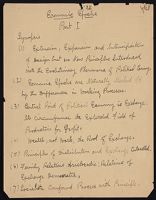 Economic Epochs
Part I
Synopsis
(1) Extension, Expansion and Intensification
of Energy but no New Principles Introduced
with the Evolutionary Phenomena of Political Energy.
(2) Economic Epochs are Naturally Marked Off
by the Differences in Working Processes.
(3) Initial Point of Political Economy is Exchange.
Its Circumference its Exploited Field of
Production for Profit.
(4) Wealth not Work, the Root of Exchange.
(5) Principles of Distribution and Exchange
(6) Family Relations Relations of
Exchange
(7) Socialism Confused Process with Principle.